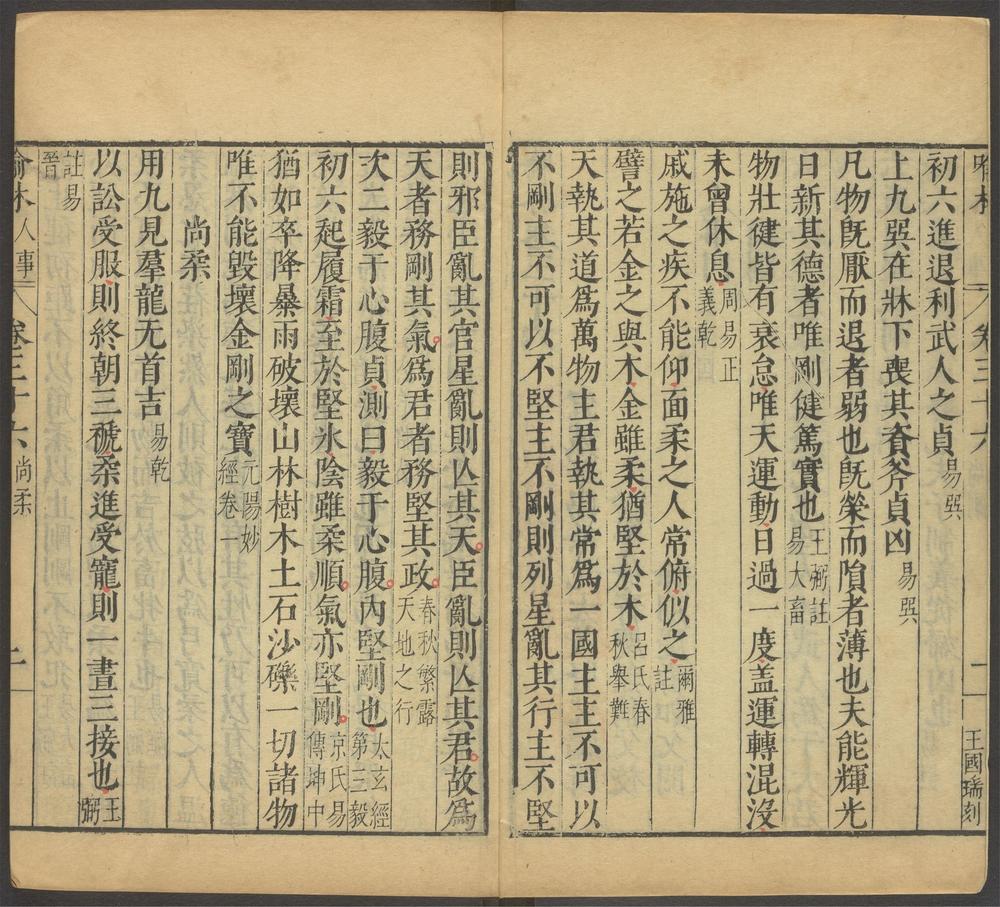 喻林 卷三十六 二 王國瑞刻
初六進退利武人之貞易巽
上九巽在牀下喪其資斧貞凶易巽
凡物旣厭而退者弱也旣榮而隕者薄也夫能輝光
日新其德者唯剛健篤實也王弼註易大畜
物壯徤皆有衰怠唯天運動日過一度盖運轉混沒
未曾休息周易正義乾
戚施之疾不能仰面柔之人常俯似之爾雅註
譬之若金之與木金雖柔猶堅於木呂氏春秋舉難
天執其道爲萬物主君執其常爲一國主主不可以
不剛主不可以不堅主不剛則列星亂其行主不堅
則邪臣亂其官星亂則亾其天臣亂則亾其君故爲
天者務剛其氣爲君者務堅其政春秋繁露天地之行
次二毅于心腹貞測曰毅于心腹內堅剛也太玄經第三毅
初六起履霜至於堅氷陰雖柔順氣亦堅剛京氏易傳坤中
猶如卒降暴雨破壞山林樹木土石沙礫一切諸物
唯不能毀壞金剛之寶元陽妙經卷一
尚柔
用九見羣龍无首吉易乾
以訟受服則終朝三褫柔進受寵則一晝三接也王弼
註易晉
喻林人事 卷三十六尚柔 二